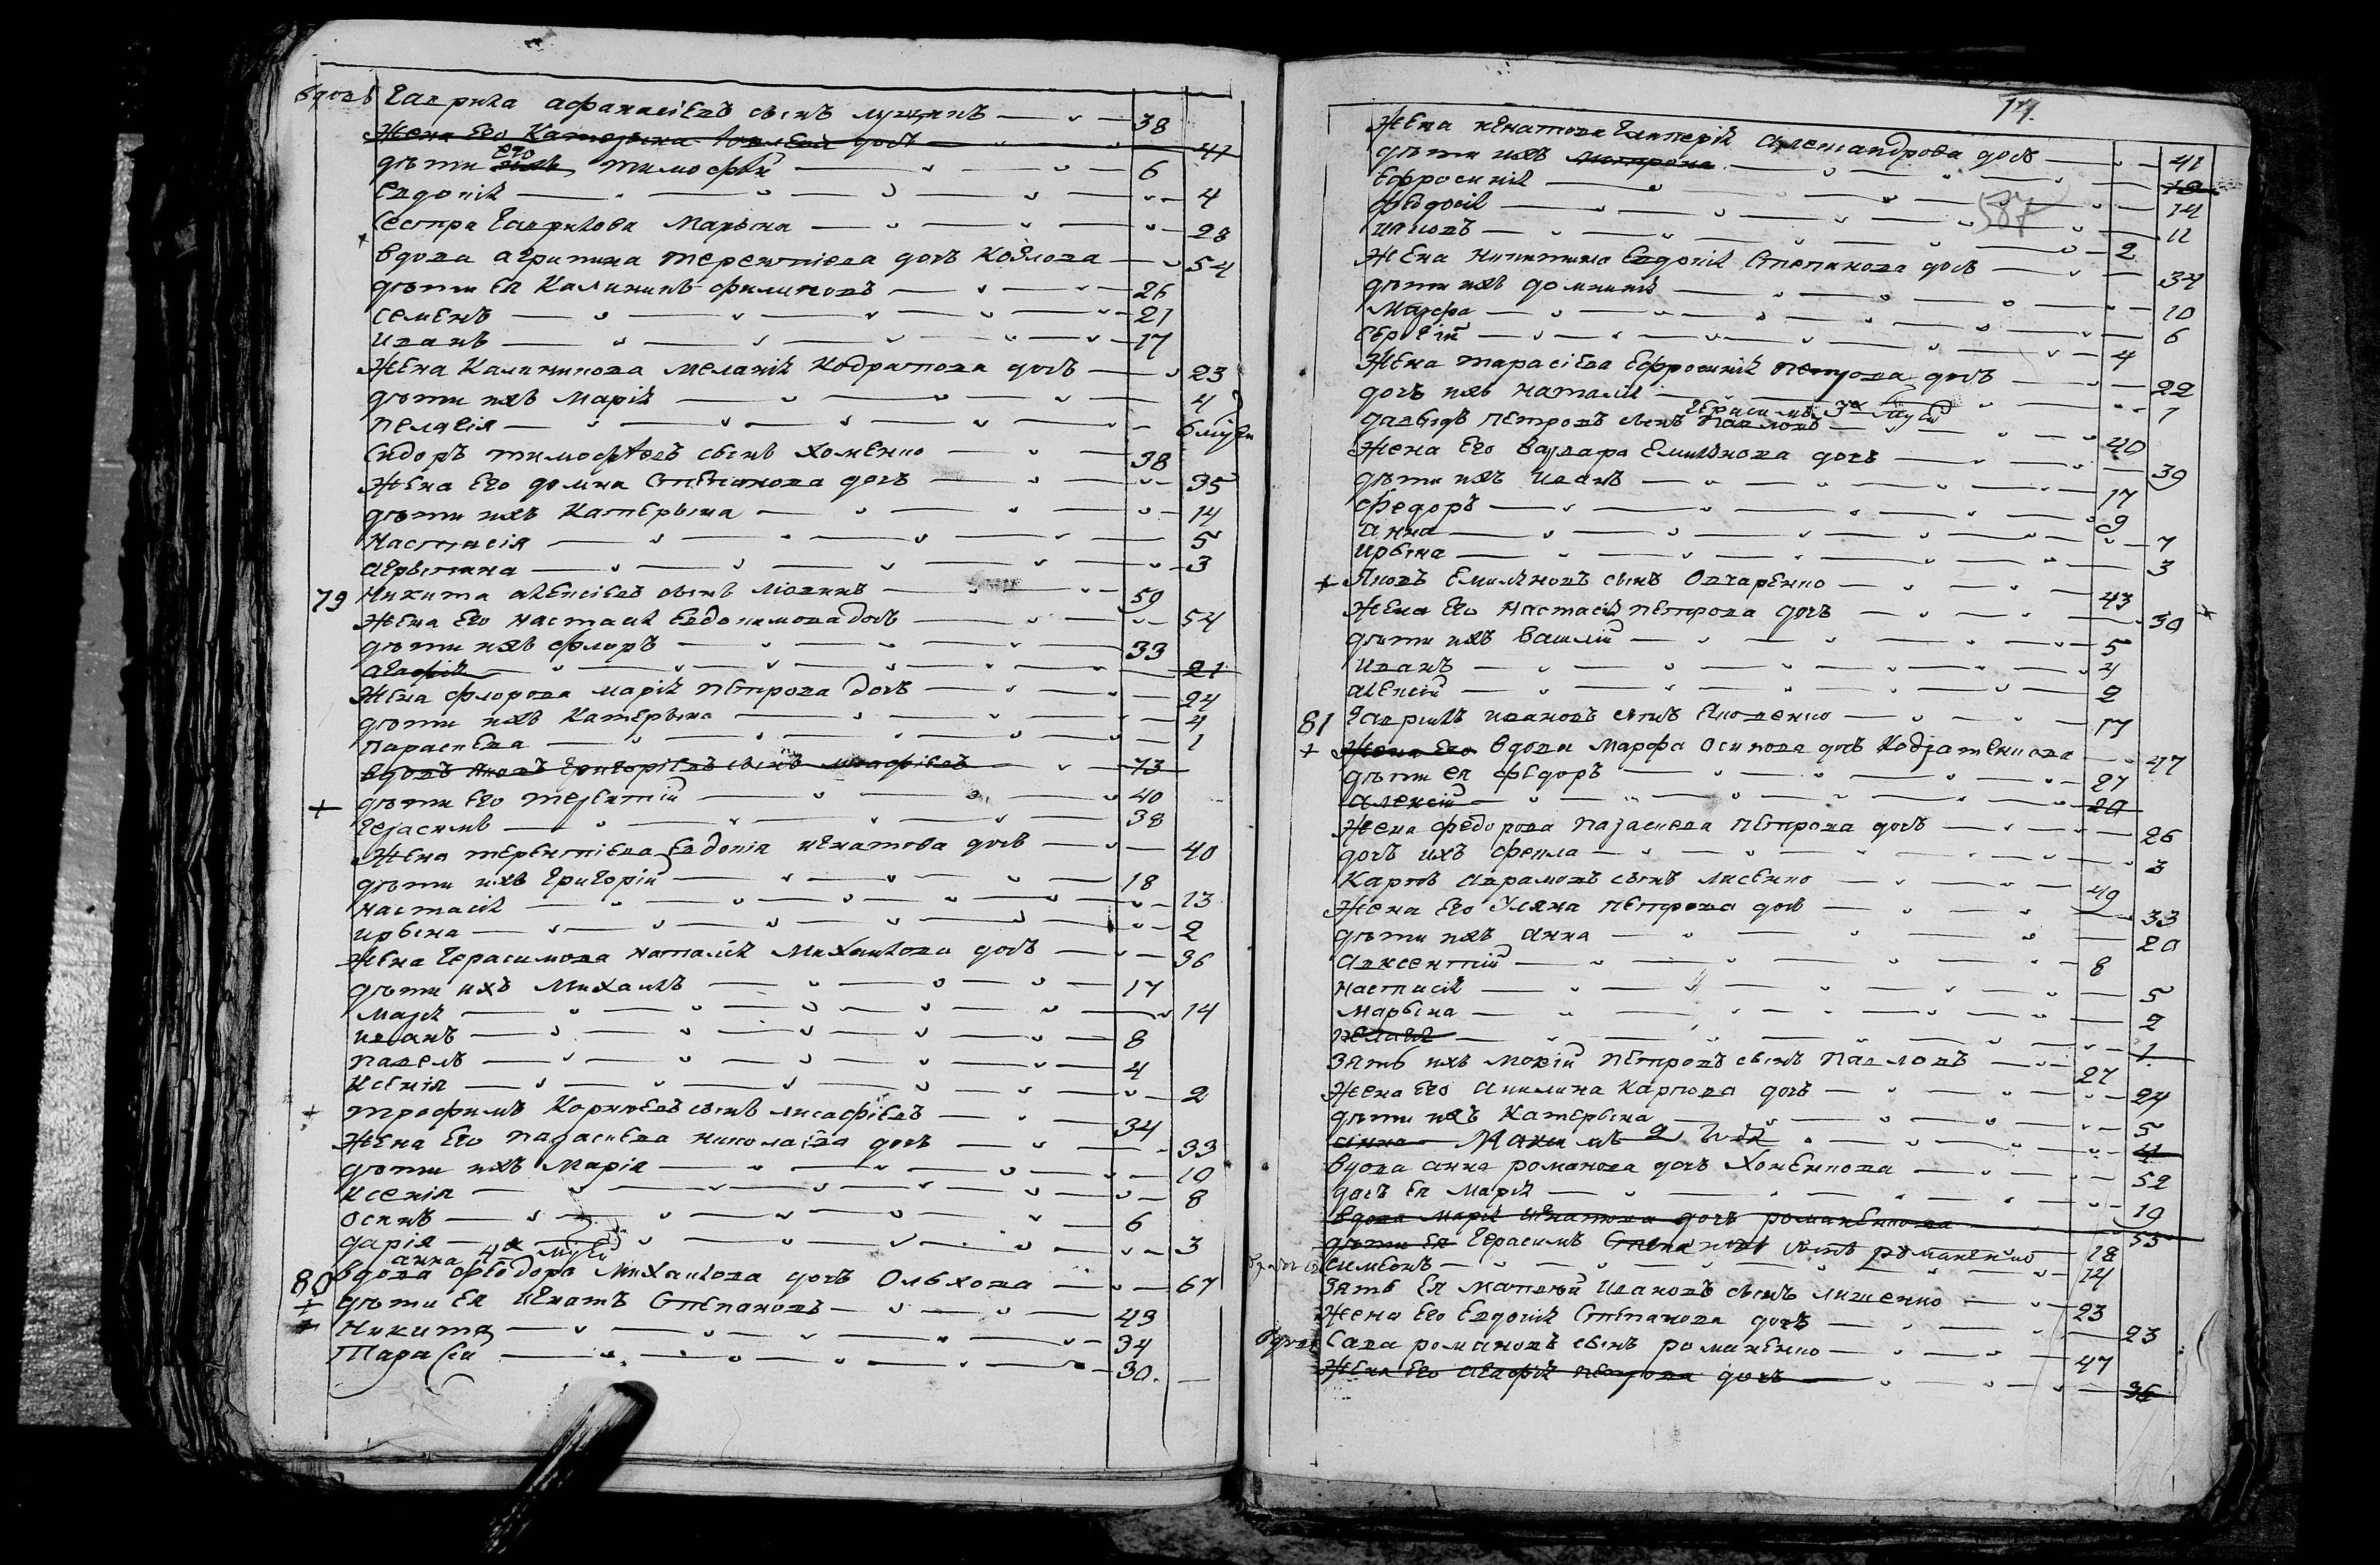 вдовъ Гаврила афанасіевъ сынъ — 38
Жена Его Катерына дочь — 41
дѣти ихъ его тимофѣй — 6
Евдокія — 4
Сестра Гаврилова Марына — 28
вдова агрипина терентиева дочь Козлова — 54
дѣти Ея Калиникъ филиповъ — 26
семенъ — 21
иванъ — 17
Жена Калиникова меланія Кодратова дочь — 23
дѣти ихъ марія — 4
пелагія — 6 мцей
Сидоръ тимофѣевъ сынъ хоменко — 38
Жена Его домна Степанова дочь — 35
дѣти ихъ Катерына — 14
Настасія — 5
агрыпина — 3
79 Никита алексіевъ сынъ — 59
Жена Его настасія Евдокимова дочь — 54
дѣти ихъ флоръ — 33
агафія — 21
Жена флорова марія петрова дочь — 24
дѣти ихъ Катерына — 4
параскева — 1
вдовъ яковъ григоріевъ сынъ — 73
+ дѣти Его терентій — 40
герасимъ — 38
Жена терентиева Евдокія игнатова дочь — 40
дѣти ихъ григорій — 18
настасія — 13
ирына — 2
Жена герасимова наталія михайлова дочь — 36
дѣти ихъ михаилъ — 17
марія — 14
иванъ — 8
павелъ — 4
ксенія — 2
+ трофимъ Корніевъ сынъ — 34
Жена Его параскева николаева дочь — 33
дѣти ихъ марія — 10
ксенія — 8
осипъ — 6
дарія — 3
анна 4х мцей
80 вдова феодора михайлова дочь Ольхова — 67
+ дѣти Ея игнатъ Степановъ — 43
+ Никита — 34
Тарасій — 30
14.
Жена игнатова гликерія александрова дочь — 41
дѣти ихъ — 19
Ефросинія — 14
феодосія — 11
587
яковъ — 2
Жена никитина Евдокія Степанова дочь — 34
дѣти ихъ домникія — 10
Марфа — 6
сергѣй — 4
Жена тарасіева Ефросинія петрова дочь — 22
дочь ихъ наталія — 1
герасимъ 3х мцей
давыдъ петровъ сынъ павловъ — 40
Жена Его варвара Емиліянова дочь — 39
дѣти ихъ иванъ — 17
федоръ — 9
анна — 7
ирына — 3
+ Яковъ Емиліяновъ сынъ Овчаренко — 43
Жена Его настасія петрова дочь — 30
дѣти ихъ василій — 5
иванъ — 4
алексій — 2
81 гаврилъ ивановъ сынъ Яковенко — 17
+ Жена Его вдова марфа осипова дочь Кодратенкова — 47
дѣти ея федоръ — 27
алексій — 20
Жена федорова параскева петрова дочь — 26
дочь ихъ фекла — 3
Карпъ аврамовъ сынъ лисенко — 49
Жена Его Уляна петрова дочь — 33
дѣти ихъ анна — 20
авксентій — 8
настасія — 5
марына — 2
пелагія — 1
Зять ихъ мокій петровъ сынъ павловъ — 27
Жена Его акилина Карпова дочь — 24
дѣти ихъ Катерына — 5
анна — Максимъ 2 — 4
вдова анна романова дочь хоменкова — 52
дочь Ея марія — 19
вдова марія игнатова дочь романенкова — 53
дѣти Ея герасимъ Степановъ сынъ романенко — 18
симеонъ — 14
Зять Ея матвѣй ивановъ сынъ лишенко — 23
Жена Его Евдокія Степанова дочь — 23
вдовъ Сава романовъ сынъ романенко — 47
Жена Его агафія петрова дочь — 36